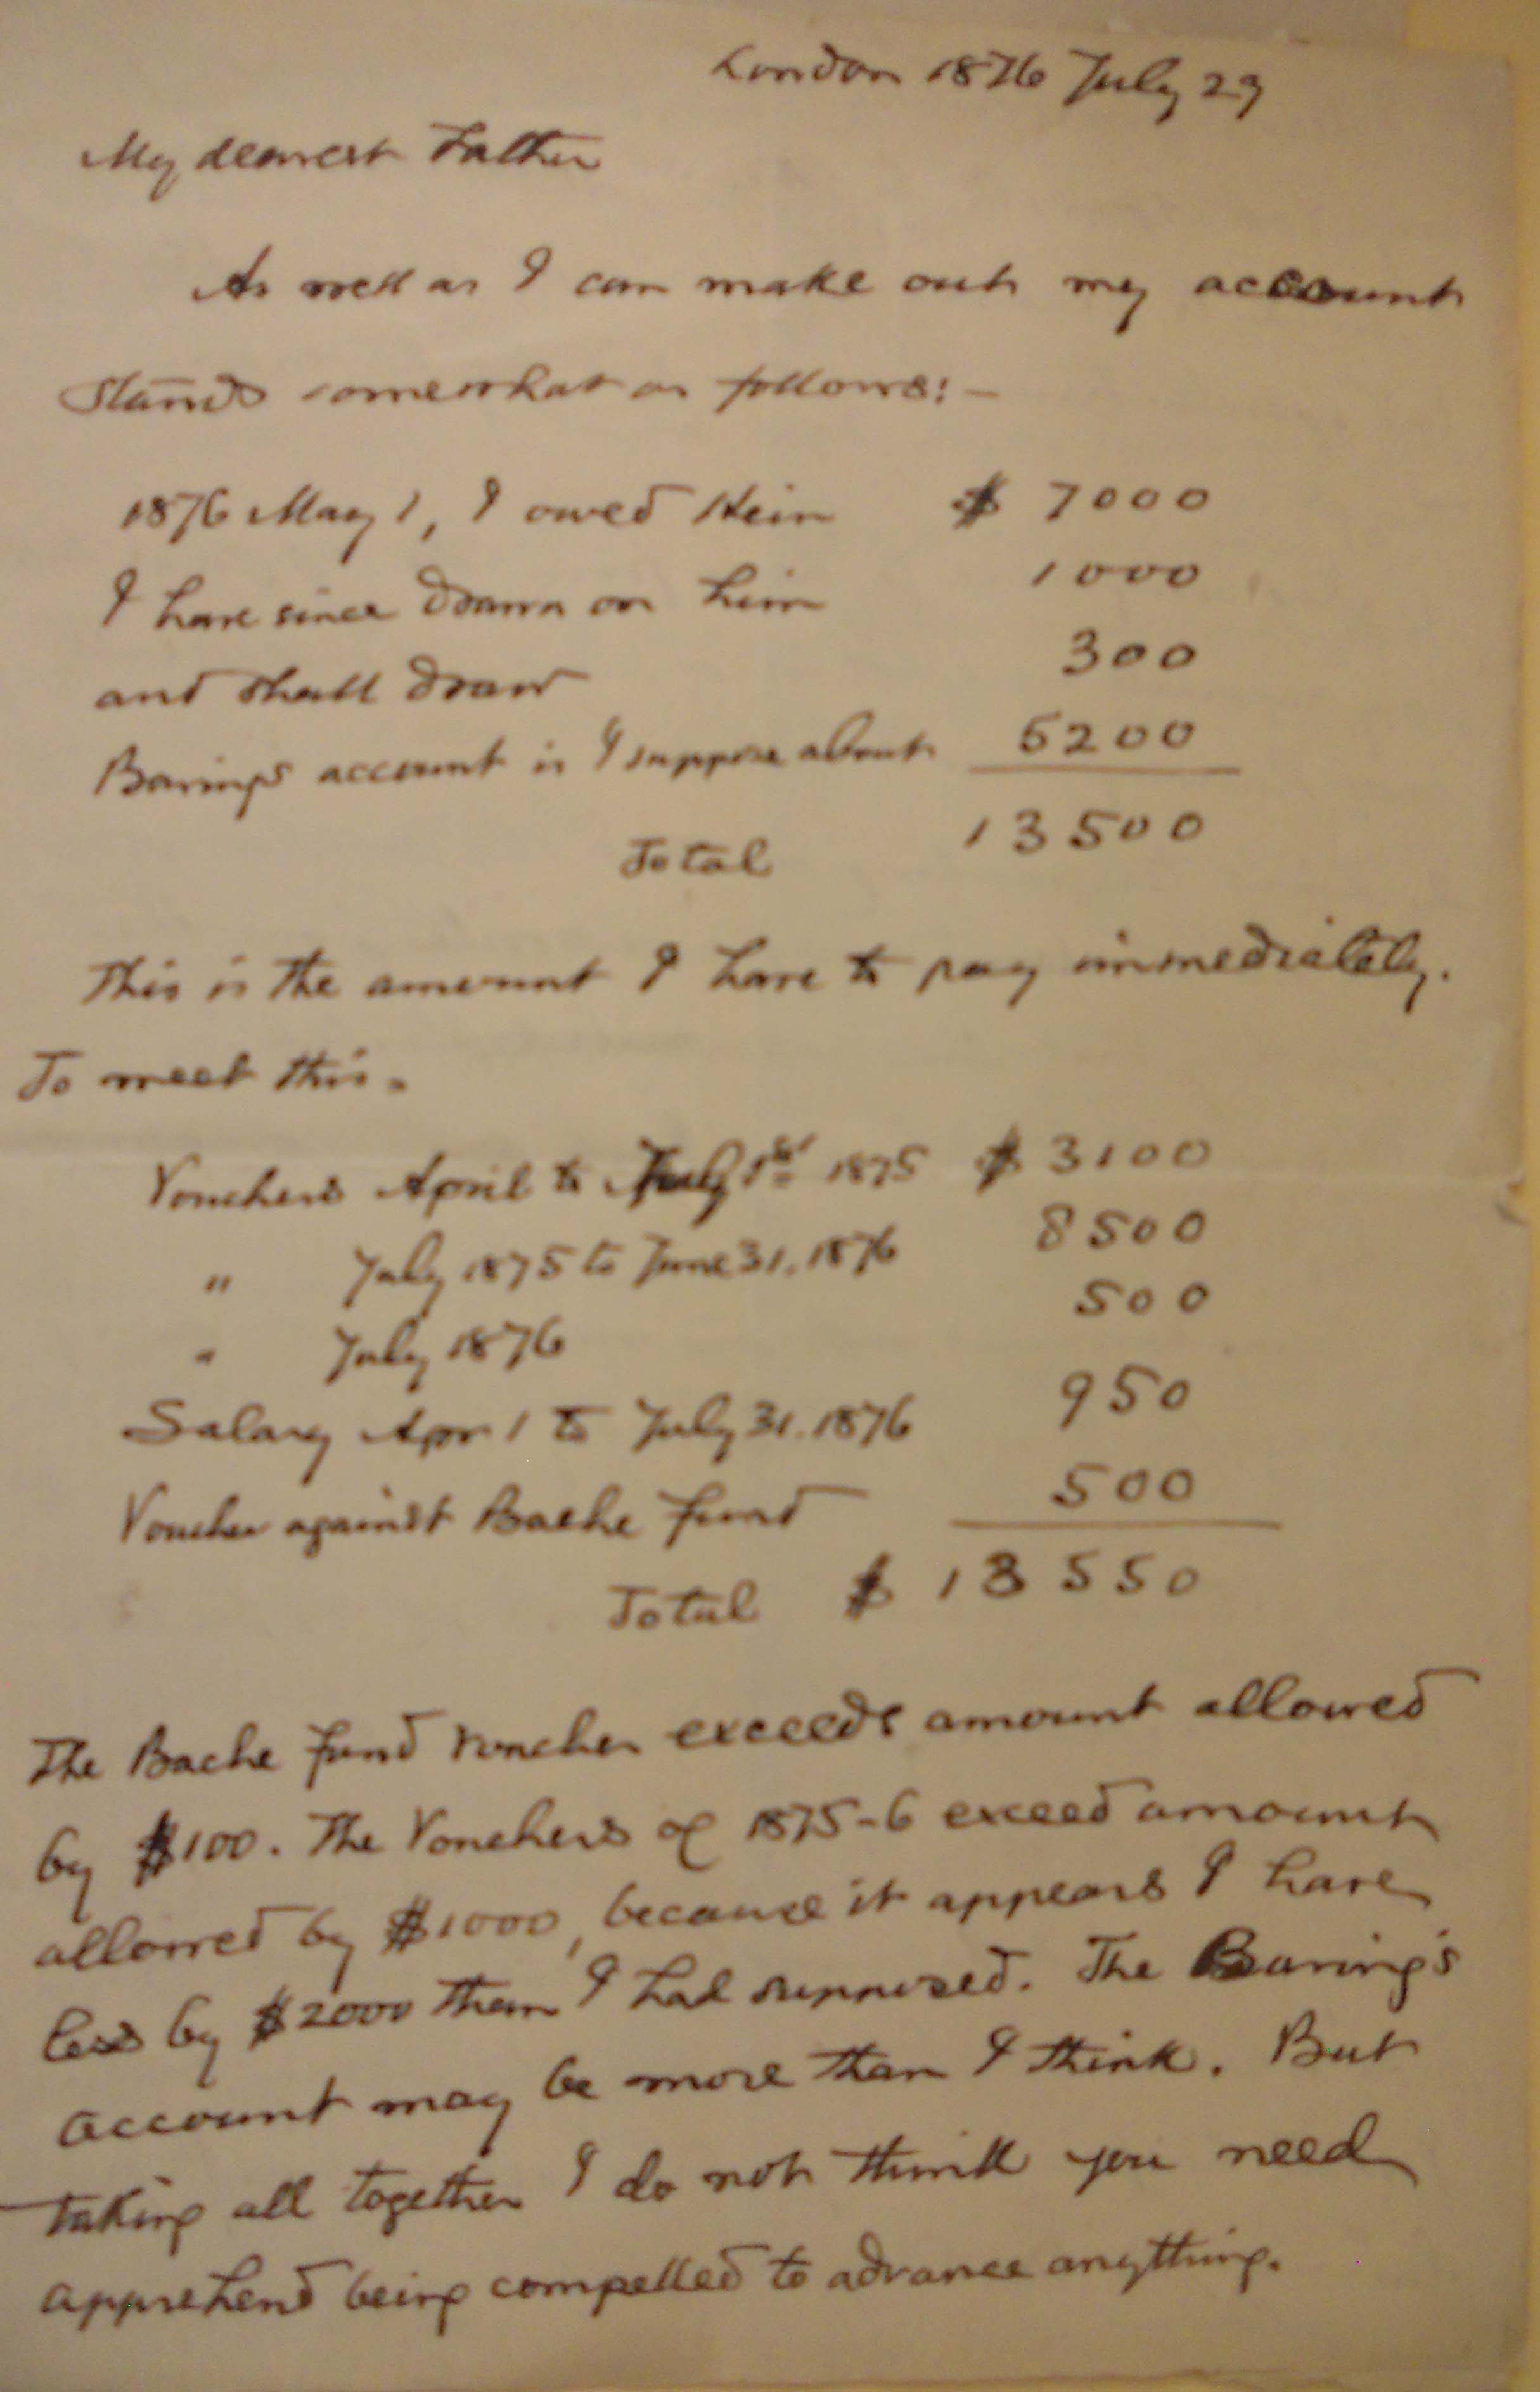 London 1876 July 29
My dearest Father
As well as I can make out my account
stands somewhat as follows:—
1876 May 1, I owed Hein $ 7000
I have since drawn on him 1000
and shall draw 300
Barings account is I suppose about 5200
Total 13500
This is the amount I have to pay immediately.
To meet this.
Vouchers April to July 1st 1875 $ 3100
" July 1875 to June 31. 1876 8500
" July 1876 500
Salary Apr 1 to July 31. 1876 950
Voucher against Bache fund 500
Total $ 13550
The Bache fund voucher exceeds amount allowed
by $100. The Vouchers of 1875-6 exceed amount
allowed by $1000, because it appears I have
less by $2000 than I had supposed. The Baring's
account may be more than I think. But
taking all together I do not think you need
apprehend being compelled to advance anything.